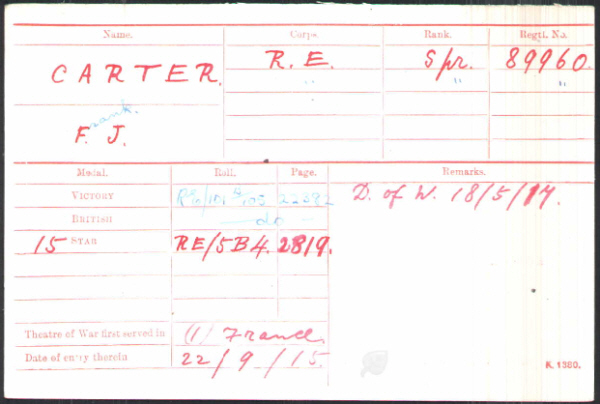 Name. Corps. Rank. Regtl. No.
CARTER. R.E. Spr. 89960.
" " "
Frank.
F. J.
Medal. Roll. Page. Remarks.
VICTORY 22392 D. of W. 18/5/17.
BRITISH — do —
15 STAR RE/5B4. 2819.
Theatre of War first served in (1) France
Date of entry therein 22/9/15.
K. 1380.